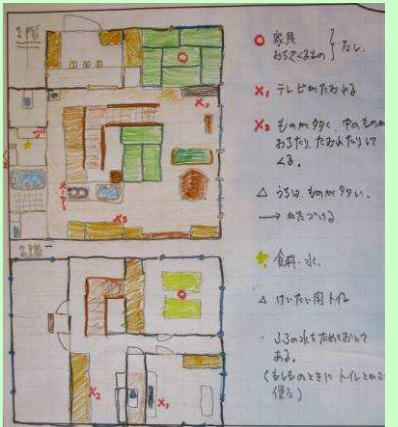 2階
○ 家具
おちてくるもの } なし。
X₁ テレビがたおれる
X₂ ものが多く、中のものが
おちたり、たおれたりして
くる。
△ うちは、ものが多い。
→ かたづける
食料・水
△ けいたい用トイレ
・ふろの水をためておいて
ある。
(もしものときに トイレとかに
使う)
X₂
X₁